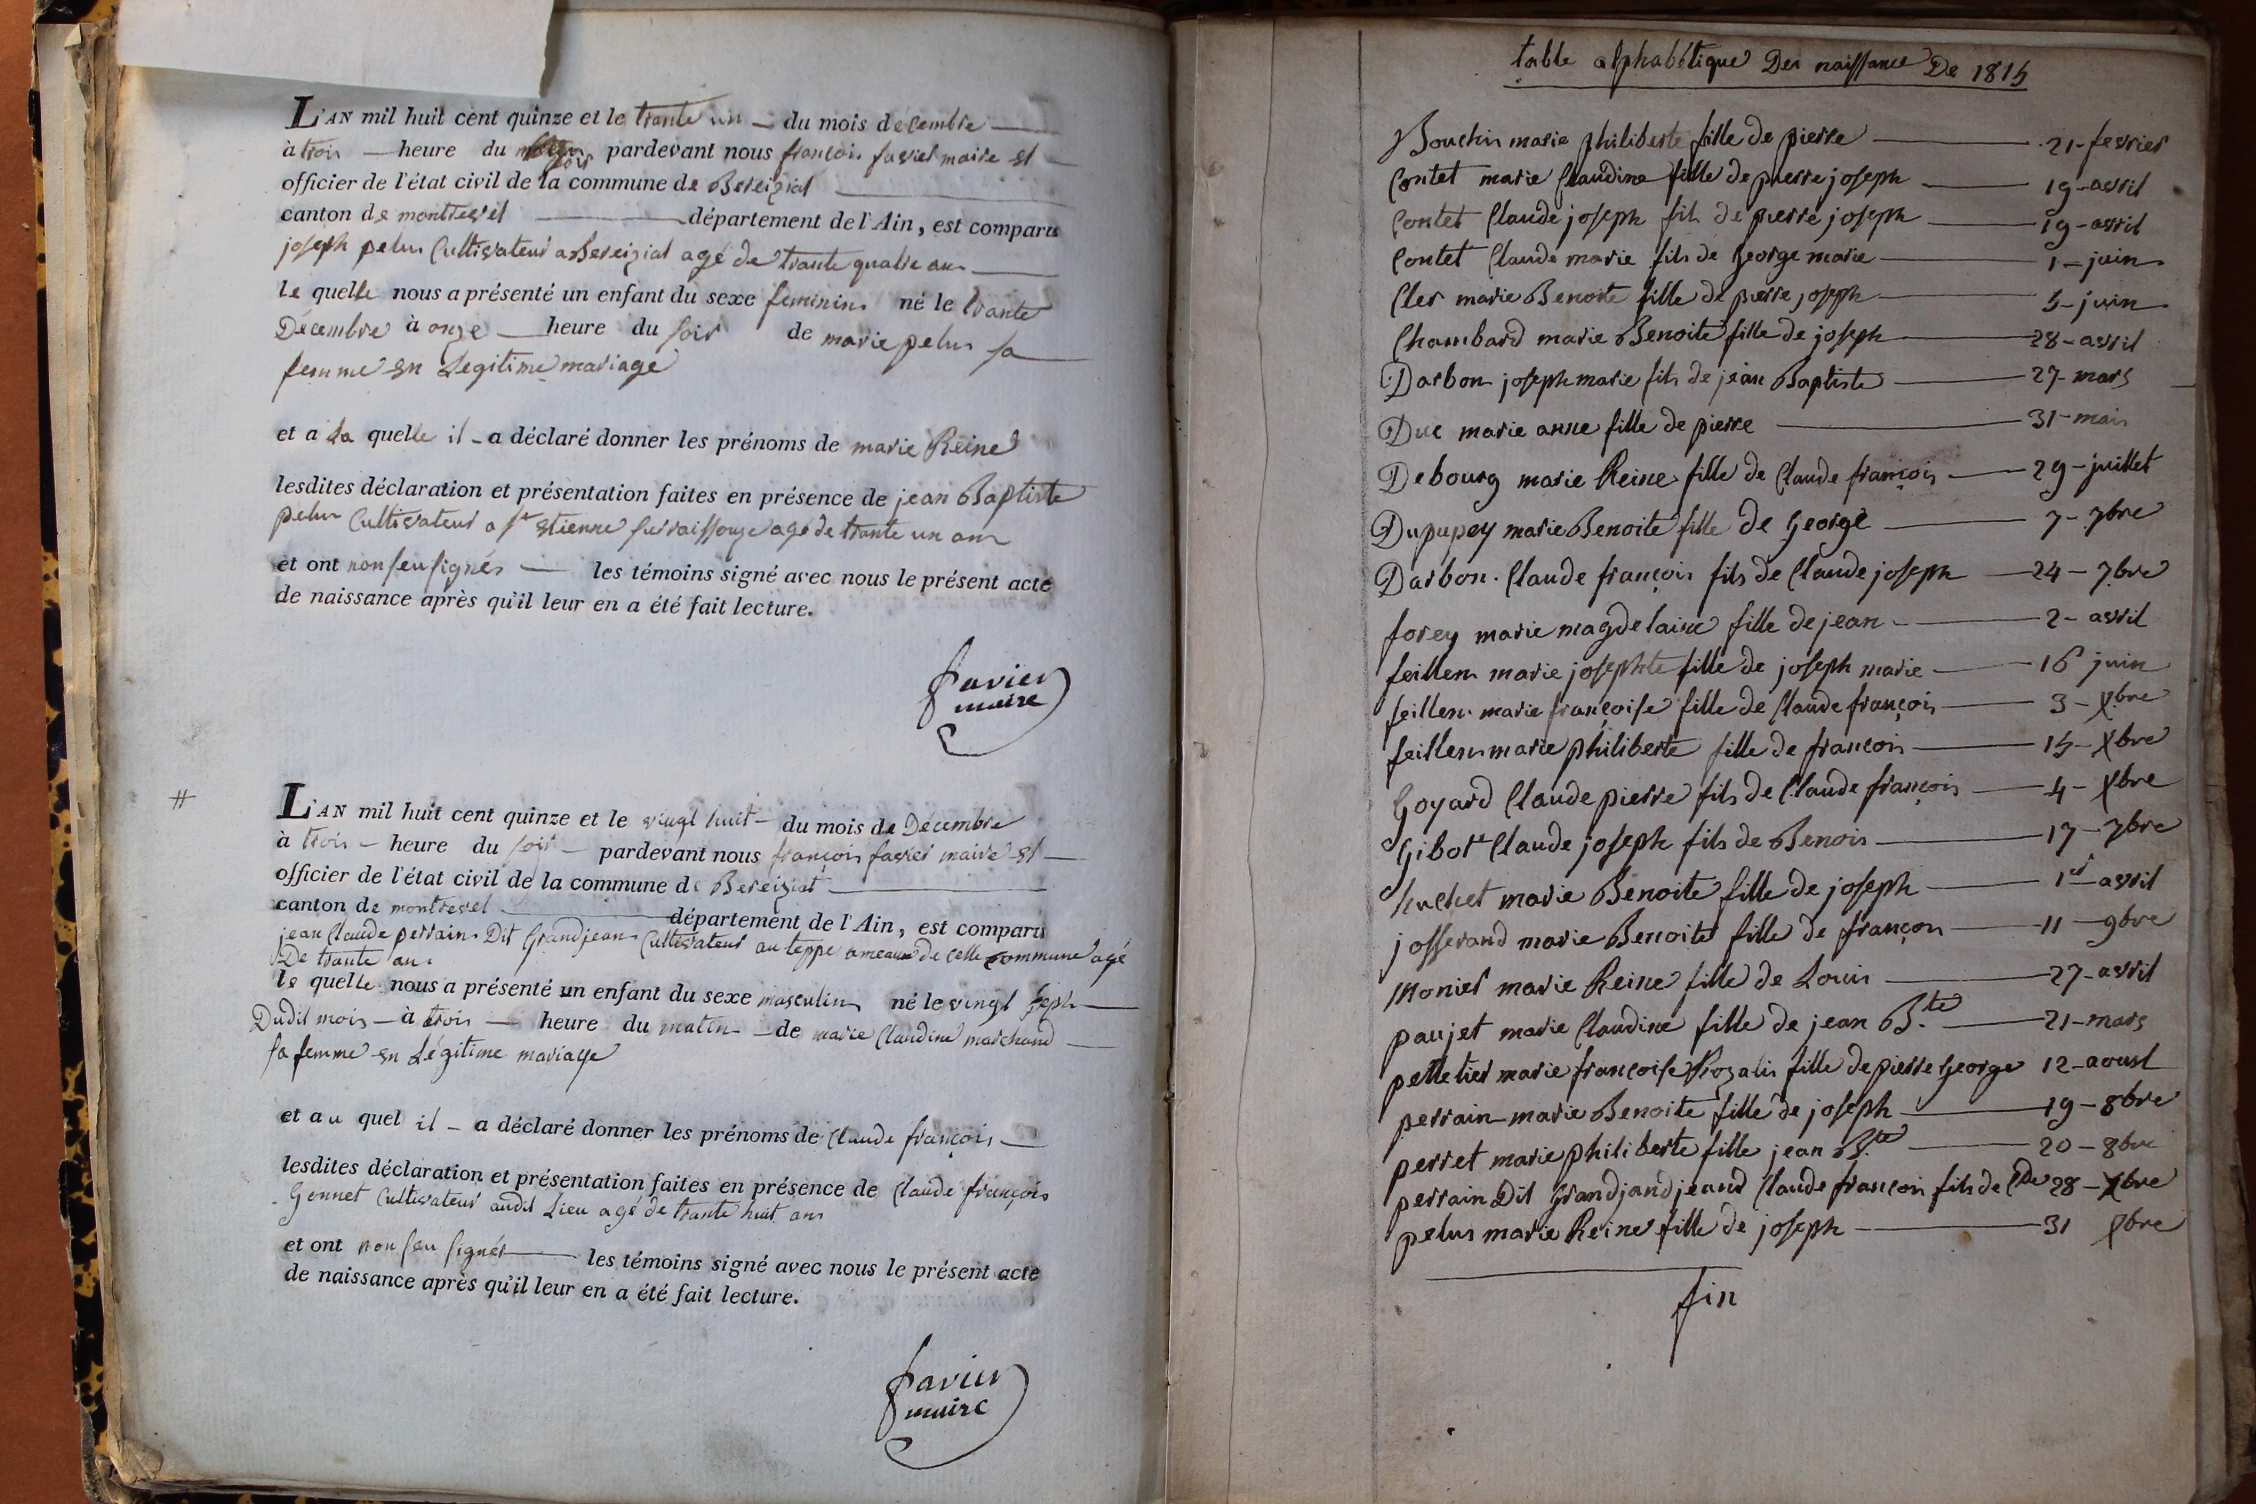 L'AN mil huit cent quinze et le trante un du mois decembre
à trois heure du soir pardevant nous françois favier maire et
officier de l'état civil de la commune de Bereiziat
canton de montrevel département de l'Ain, est comparu
joseph pelus Cultivateur a Bereiziat agé de trante quatre ans
le quelle nous a présenté un enfant du sexe feminin né le trante
Décembre à onze heure du soir de marie pelus sa
femme en Legitime mariage
et a la quelle il a déclaré donner les prénoms de marie Reine
lesdites déclaration et présentation faites en présence de jean Baptiste
pelus Cultivateur a St etienne surraissouze agé de trante un ans
et ont non seu signés les témoins signé avec nous le présent acte
de naissance après qu'il leur en a été fait lecture.
favier
maire
#
L'AN mil huit cent quinze et le vingt huit du mois de Décembre
à trois heure du soir pardevant nous françois favier maire et
officier de l'état civil de la commune de Bereiziat
canton de montrevel département de l'Ain, est comparu
jean Claude perrain Dit Grandjean Cultivateur au teppe ameaux de celle commune agé
De trante ans
le quelle nous a présenté un enfant du sexe masculin né le vingt sept
Dudit mois à trois heure du matin de marie Claudine marchand
sa femme en Légitime mariage
et au quel il a déclaré donner les prénoms de Claude françois
lesdites déclaration et présentation faites en présence de Claude françois
Gonnet Cultivateur audit Lieu agé de trante huit ans
et ont non seu signés les témoins signé avec nous le présent acte
de naissance après qu'il leur en a été fait lecture.
favier
maire
table alphabétique Des naissance De 1815
Bouchin marie philiberte fille de pierre 21 - fevrier
Contet marie Claudine fille de pierre joseph 19 - avril
Contet Claude joseph fils de pierre joseph 19 - avril
Contet Claude marie fils de George marie 1 - juin
Cler marie Benoite fille de pierre joseph 5 - juin
Chambard marie Benoite fille de joseph 28 - avril
Darbon joseph marie fils de jean Baptiste 27 - mars
Duc marie anne fille de pierre 31 - mais
Debourg marie Reine fille de Claude françois 29 - juillet
Dupupey marie Benoite fille de George 7 - 7bre
Darbon Claude françois fils de Claude joseph 24 - 7bre
forey marie magdelaine fille de jean 2 - avril
feillens marie josephte fille de joseph marie 16 juin
feillens marie françoise fille de Claude françois 3 - Xbre
feillens marie philiberte fille de françois 15 - Xbre
Goyard Claude pierre fils de Claude françois 4 - Xbre
Gibot Claude joseph fils de Benois 17 - 7bre
huchet marie Benoite fille de joseph 1er avril
josserand marie Benoite fille de françois 11 - 9bre
Monier marie Reine fille de Louis 27 - avril
paujet marie Claudine fille de jean Bte 21 - mars
pelletier marie françoise Rozalis fille de pierre George 12 - aoust
perrain marie Benoite fille de joseph 19 - 8bre
perret marie philiberte fille jean Bte 20 - 8bre
perrain Dit Grandjandjeand Claude françois fils de Cde 28 - Xbre
pelus marie Reine fille de joseph 31 Xbre
fin